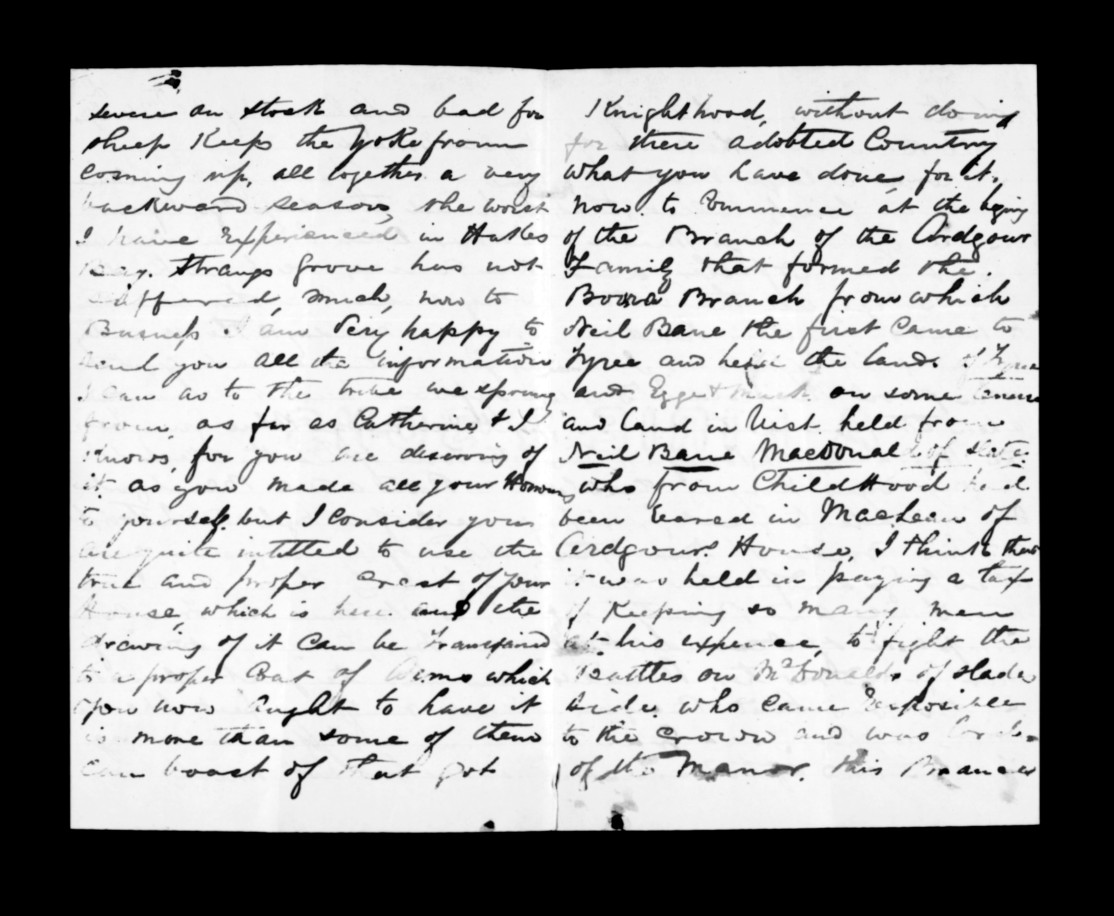 severe on stock and bad for
sheep Keeps the yoke from
coming up, all together a very
backward season, the worst
I have Experienced in Hawkes
Bay. Strangs Grove has not
suffered, much, now to
Business I am Very happy to
send you all the information
I can as to the tribe we sprung
from, as far as Catherine & I
Knows, for you are deserving of
it as you made all your Honours
to yourself. but I Consider your
are quite intitled to use the
true and proper Crest of your
House, which is here and the
drawing of it Can be Transfaired
to a proper Coat of Arms which
you now aught to have it
is more than some of them
can boast of that got
Knighthood, without doing
for there adobted Country
what you have done, for it.
now to Commence at the begining
of the Branch of the Ardgour
Family that formed the
Branch from which
Neil Bane the first Came to
Tyree and held the lands of Tyree
and on some
and land in Uist held from
Neil Bane Macdonald of
who from ChildHood had
been in MacLean of
Ardgour's House, I think there
it was held in paying a tax
of Keeping so many men
at his expence, to fight the
Battles on McDonalds of
side who Came
to the Crown and was
of the Manor. this Branch